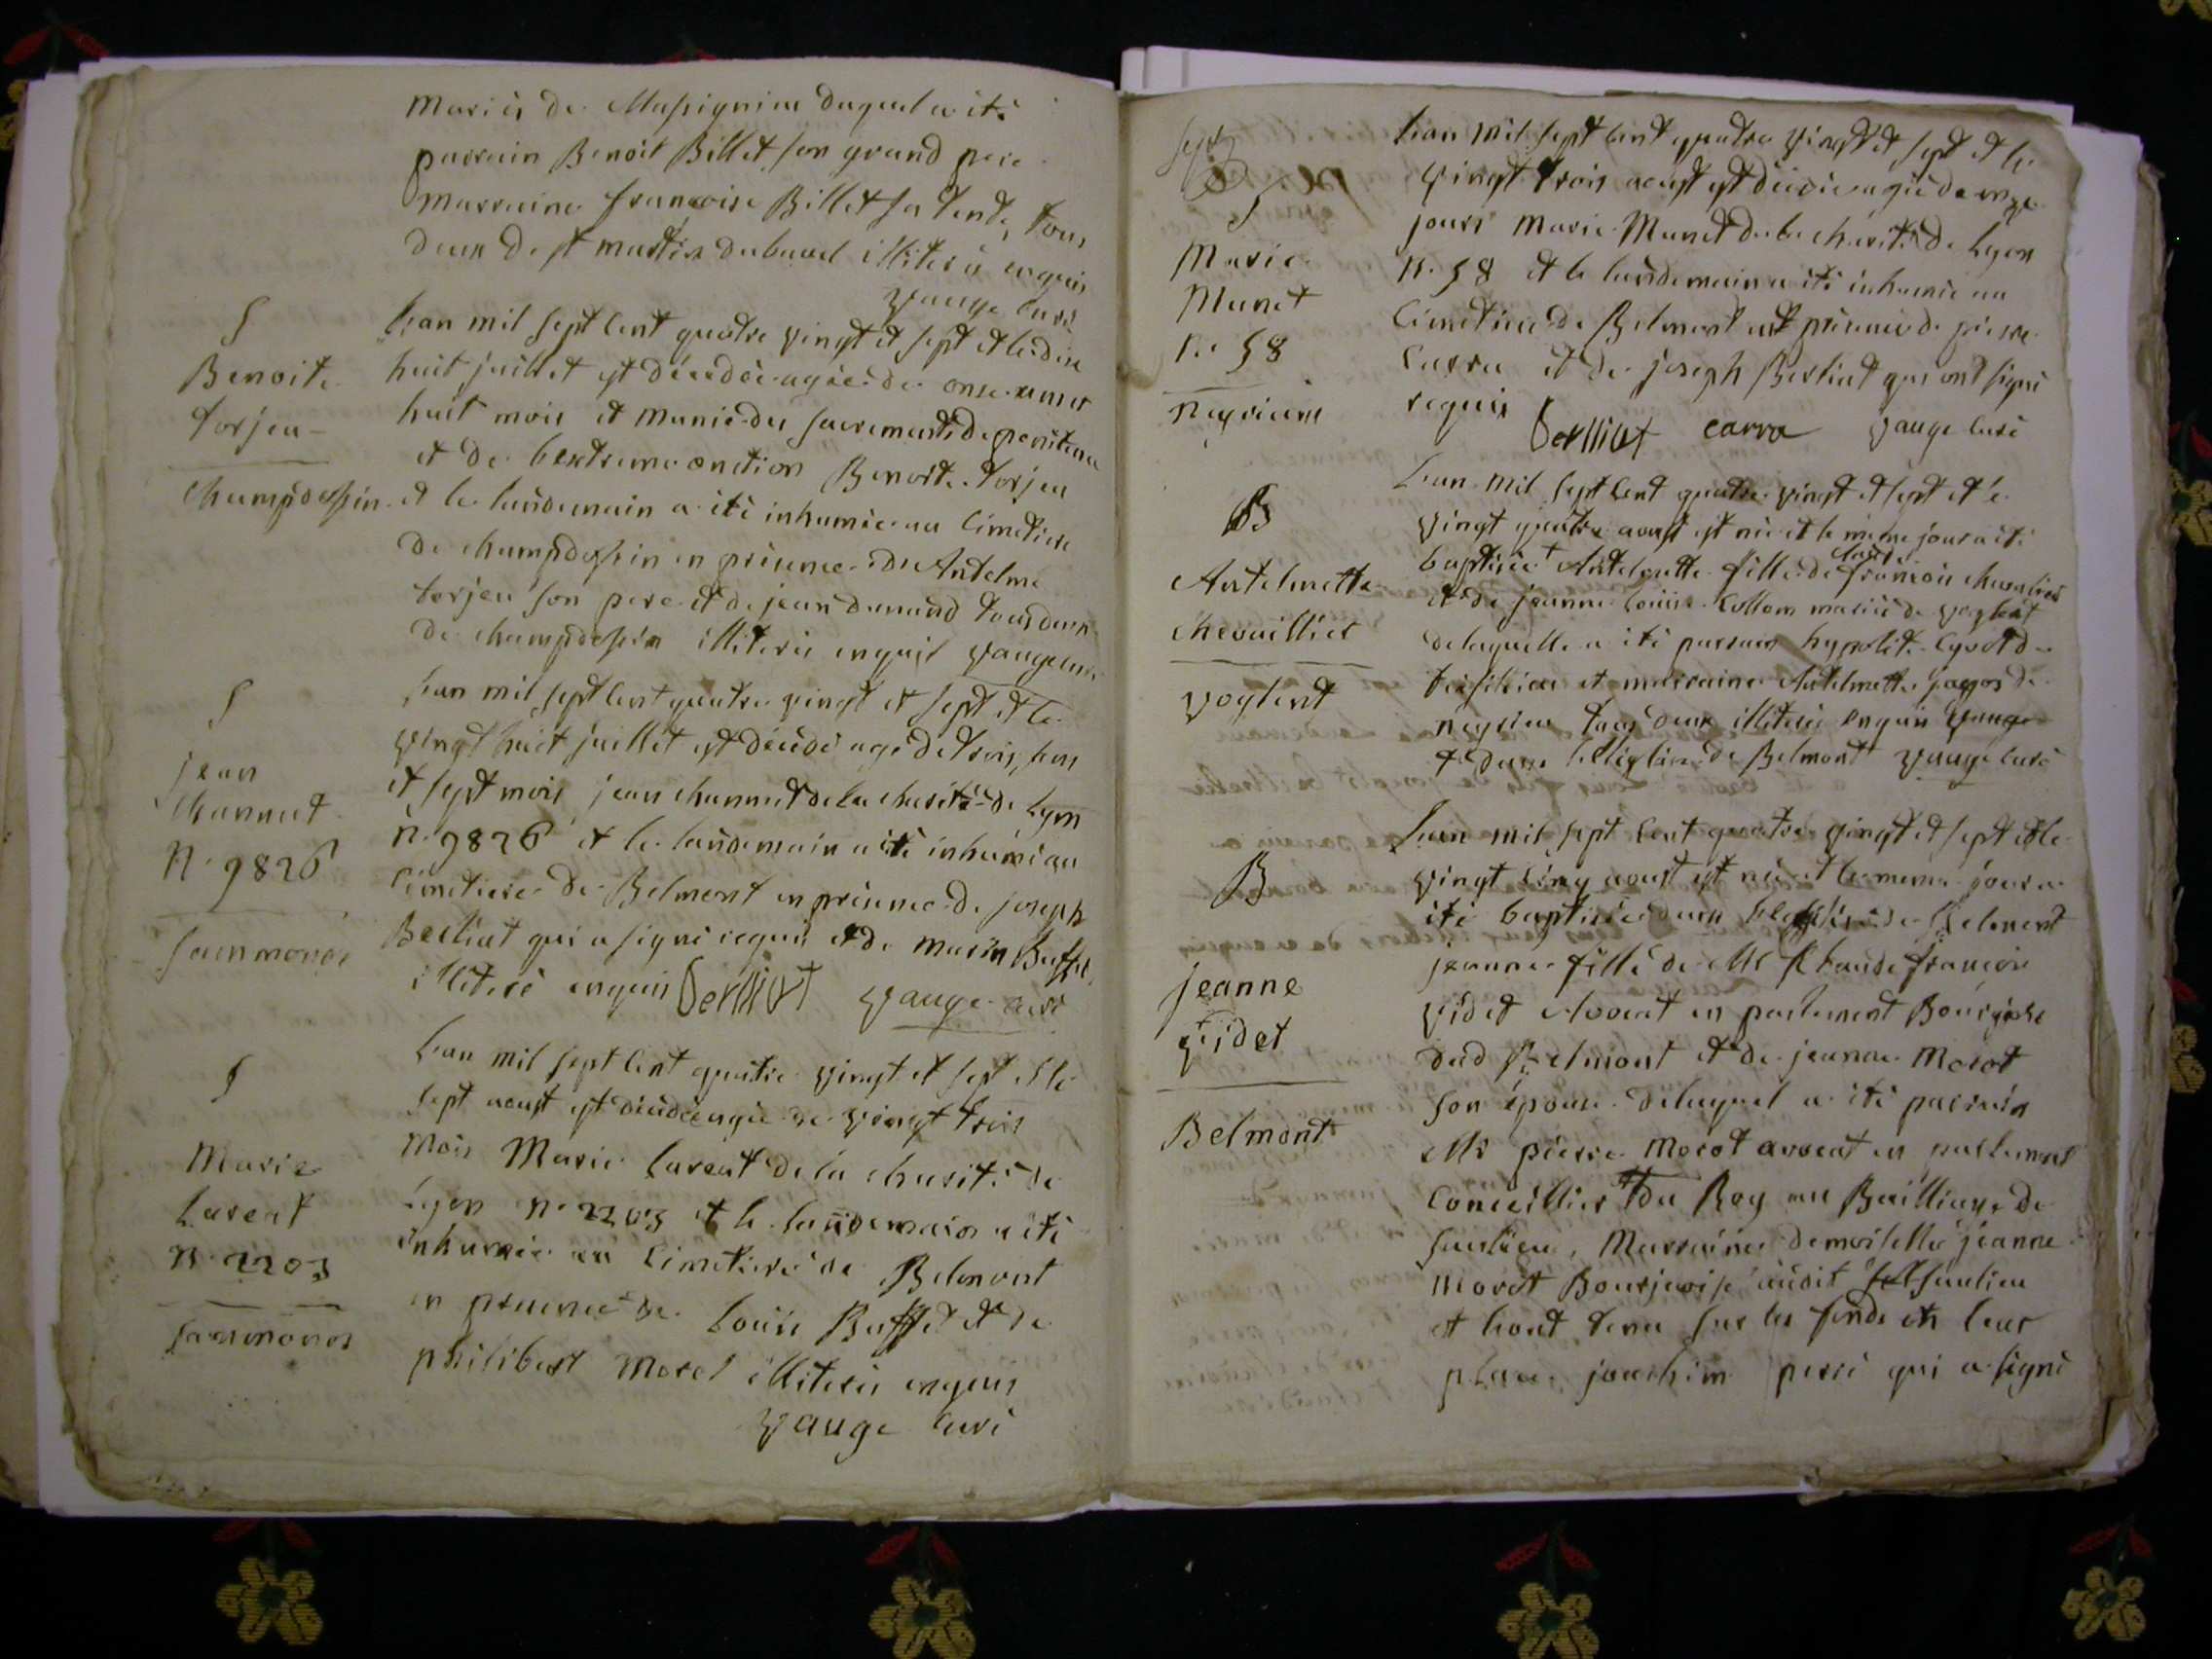 mariés de Massignieu duquel a été
parrain Benoit Billet son grand pere
marraine francoise Billet sa tente, tous
deux de st martin dubavel illiteré enquis
vauge curé
S
Benoite
torjeu
champdossin
Lan mil sept cent quatre vingt et sept et le dix
huit juillet est décédée agée de onze anset
huit mois et munie des sacrements de penitence
et de lextreme onction Benoite torjeu
et le landemain a été inhumée au cimetiere
de champdossin en présence de Antelme
torjeu son pere et de jean dunand tous deux
de champdossin illiteré enquis vauge curé
S
jean
channet
N. 9826
Lan mil sept cent quatre vingt et sept et le
vingt huit juillet est décédé agé de trois ans
et sept mois jean channet de la charité de Lyon
n. 9826 et le landemain a été inhumé au
cimetiere de Belmont en présence de joseph
Berliat qui a signé requis et de marin Buffet
illiteré enquis Berlliat vauge curé
S
Marie
Lareat
N. 2203
Lan mil sept cent quatre vingt et sept et le
sept aoust est décédée agée de vingt trois
mois Marie Lareat de la charité de
Lyon n. 2203 et le landemain a été
inhumée au cimetiere de Belmont
en présence de Louis Buffet et de
philibert Morel illiterés enquis
vauge curé
S
Marie
Munet
N. 58
neyrieux
Lan mil sept cent quatre vingt et sept et le
vingt trois aoust est décédée agée de onze
jours Marie Munet de la charité de Lyon
N. 58 et le landemain a été inhumée au
cimetiere de Belmont en présence de pierre
Carra et de joseph Berliat qui ont signé
requis Berlliat carra vauge curé
B
Antelmette
chevaillier
voglent
Lan mil sept cent quatre vingt et sept et le
vingt quatre aoust est née et le meme jour a été
baptisée + Antelmette fille de francois chevalier
et de jeanne Louise Collom mariés de voglent
delaquelle a été parrain hypolite Cyvot de
et marraine Antelmette jagos de
neyrieu tous deux illiteré enquis vauge
+ dans lEglise de Belmont vauge curé
B
jeanne
videt
Belmont
Lan mil sept cent quatre vingt et sept et le
vingt cinq aoust est née et le meme jour a
été baptisée dans leglise de Belmont
jeanne fille de Mr Claude francois
videt Avocat en parlement Bourgois
dud Belmont et de jeanne Morot
son épouse delaquel a été parrain
Mr pierre Morot avocat en parlement
conceillier du Roy au Bailliage de
saulieu, Marraine demoiselle jeanne
Morot Bourjoise audit saulieu
et lont tenu sur les fonds en leur
place joachim perré qui a signé